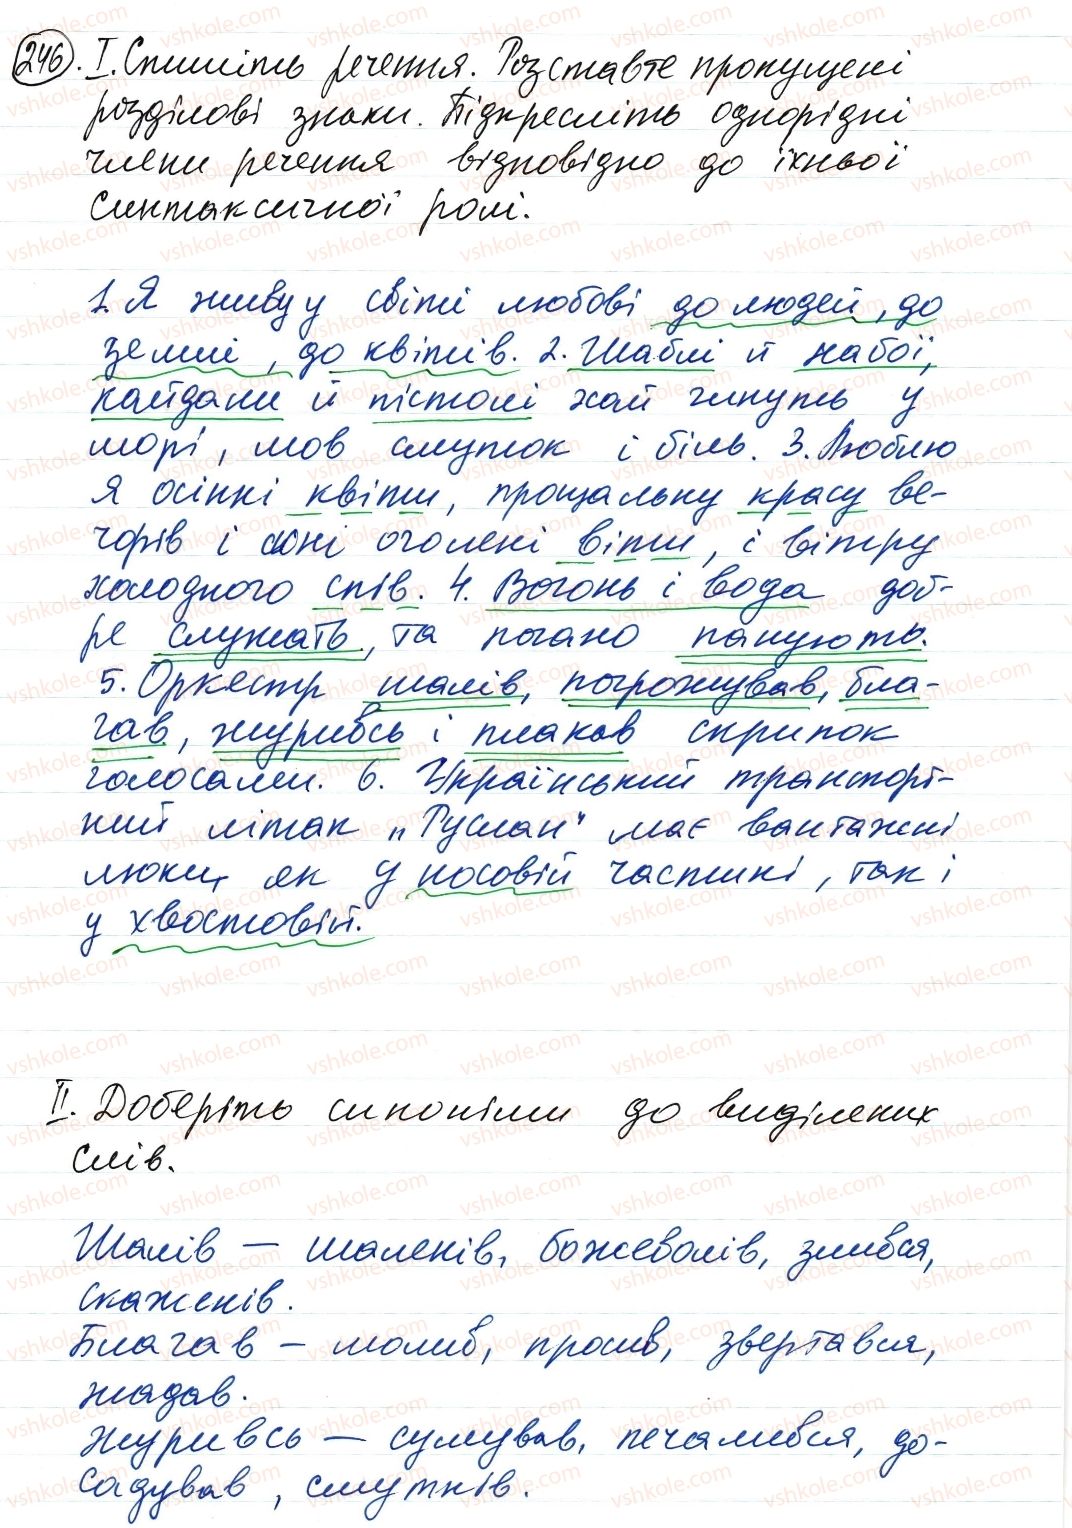 246. I. Спишіть речення. Розставте пропущені
розділові знаки. Підкресліть однорідні
члени речення відповідно до їхньої
синтаксичної ролі.
1. Я живу у світі любові до людей, до
землі, до квітів. 2. Шаблі й набої,
кайдани й пістолі хай гинуть у
морі, мов смуток і біль. 3. Люблю
я осінні квіти, прощальну красу ве-
чорів і сонні оголені віти, і вітру
холодного спів. 4. Вогонь і вода доб-
ре служать, та погано панують.
5. Оркестр шалів, погрожував, бла-
гав, журивсь і плакав скрипок
голосами. 6. Український транспорт-
ний літак „Руслан“ має вантажні
люки як у носовій частині, так і
у хвостовій.
II. Доберіть синоніми до виділених
слів.
Шалів – шаленів, божеволів, злився,
скаженів.
Благав – молив, просив, звертався,
жадав.
Журивсь – сумував, печалився, до-
садував, смутнів.